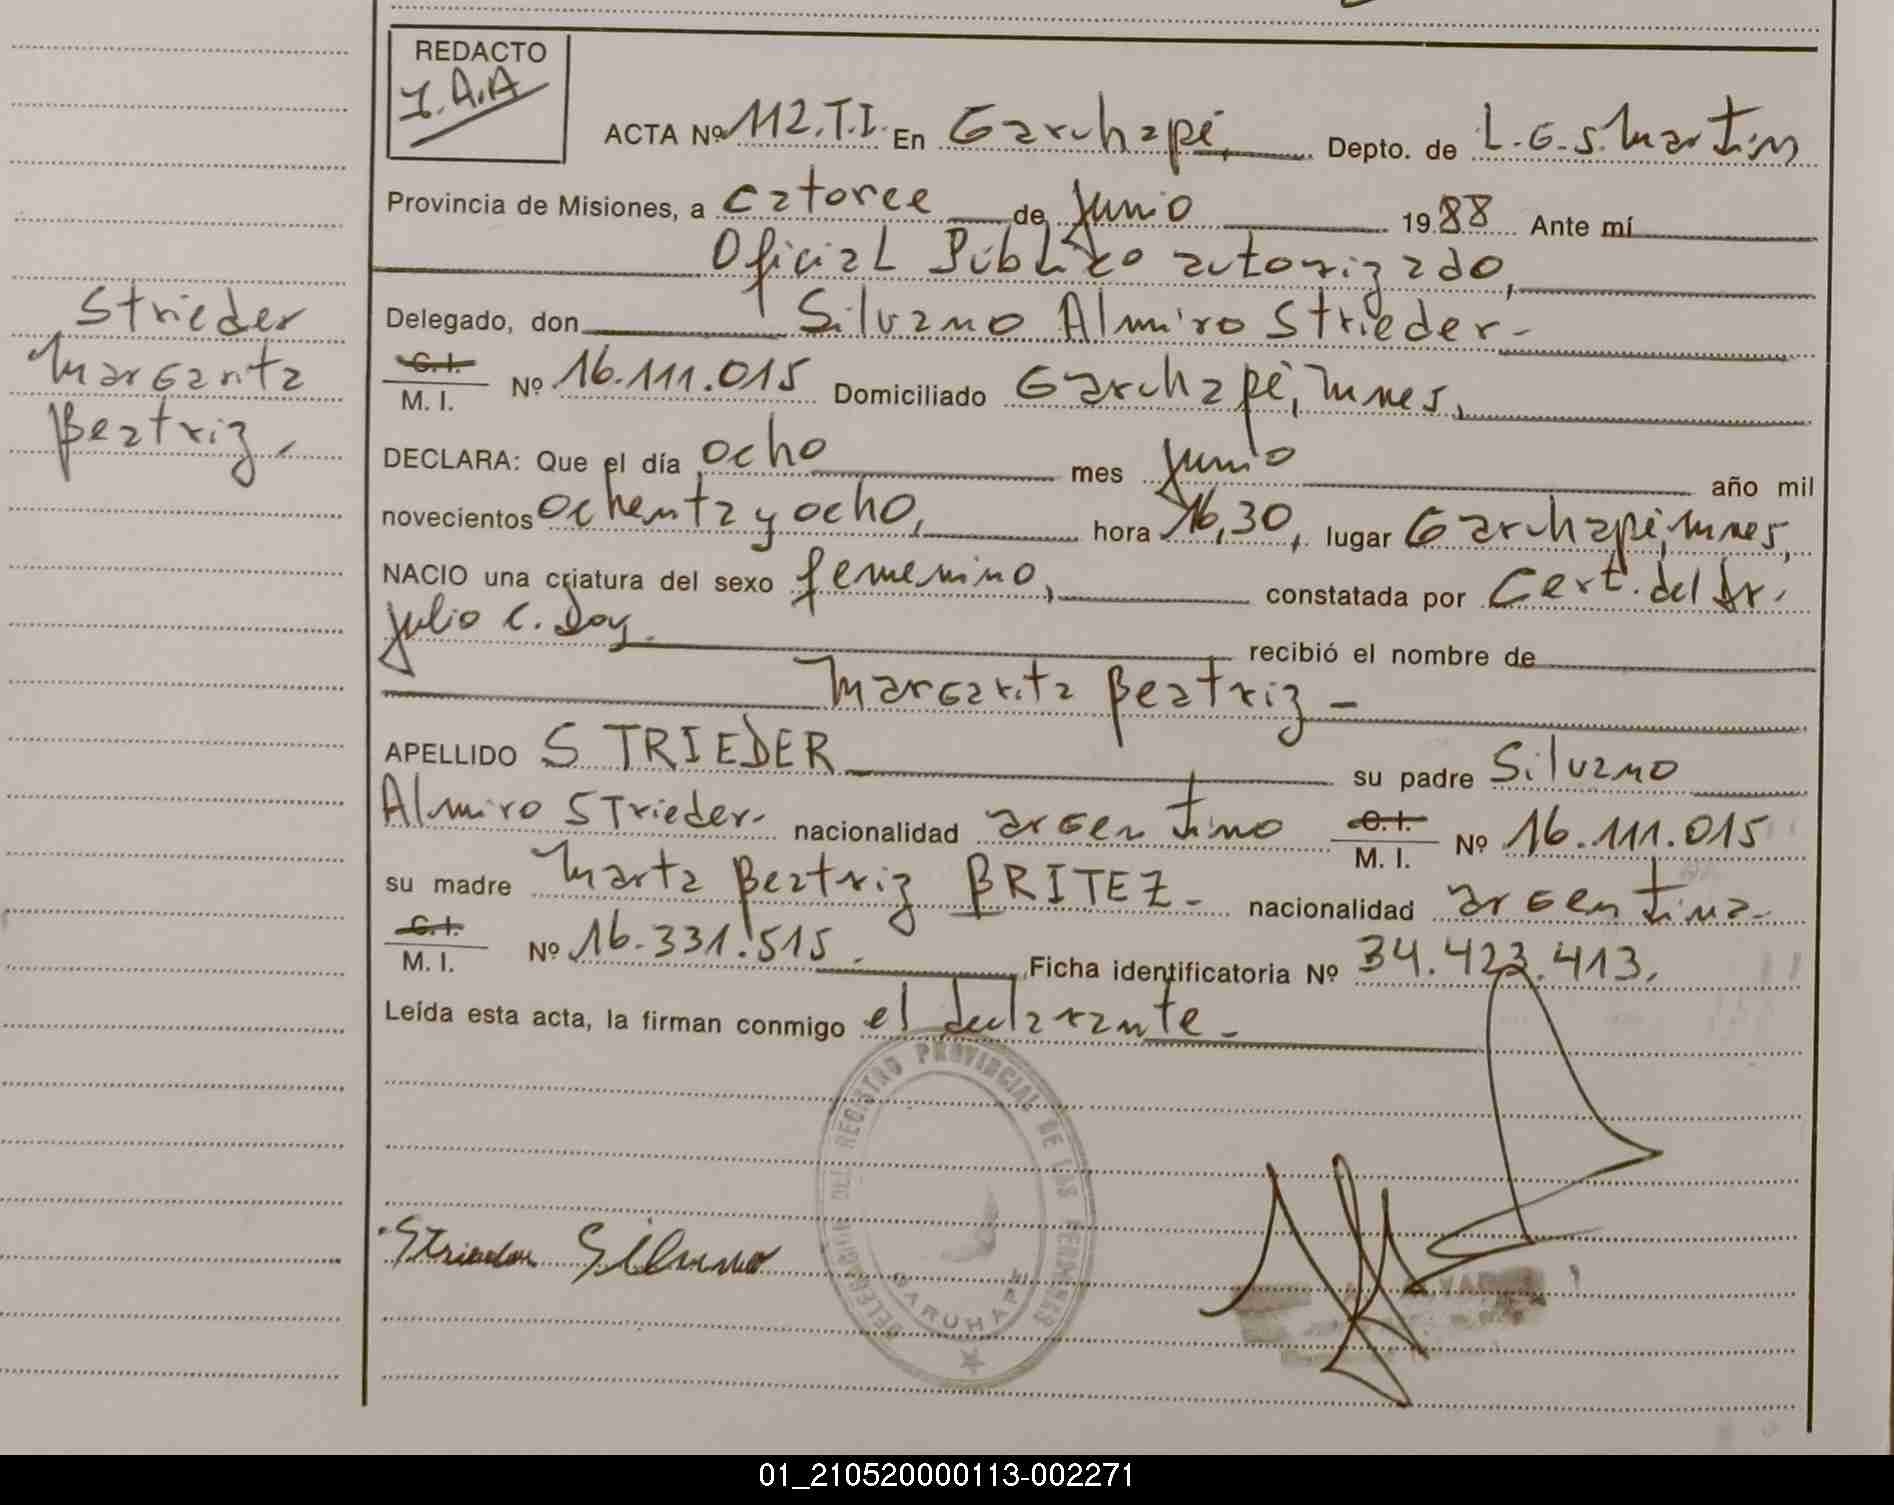 REDACTO
I.A.A
ACTA Nº 112.T.I. En Garuhapé, Depto. de L.G.S. Martin
Provincia de Misiones, a catorce de Junio 1988 Ante mí
Oficial Público autorizado,
Delegado, don Silvano Almiro Strieder-
C.I. M. I. Nº 16.111.015 Domiciliado Garuhapé, Mnes,
DECLARA: Que el día ocho mes Junio año mil
novecientos ochenta y ocho, hora 16,30, lugar Garuhapé, Mnes,
NACIO una criatura del sexo femenino, constatada por Cert. del Dr.
Julio C. Doy. recibió el nombre de
Margarita Beatriz -
APELLIDO STRIEDER su padre Silvano
Almiro Strieder- nacionalidad argentino C.I. M. I. Nº 16.111.015
su madre Marta Beatriz BRITEZ- nacionalidad argentina-
C.I. M. I. Nº 16.331.515. Ficha identificatoria Nº 34.423.413.
Leída esta acta, la firman conmigo el declarante-
Strieder
Margarita
Beatriz
Strieder Silvano
DELEGACION DEL REGISTRO PROVINCIAL DE LAS PERSONAS
GARUHAPE
01_210520000113-002271